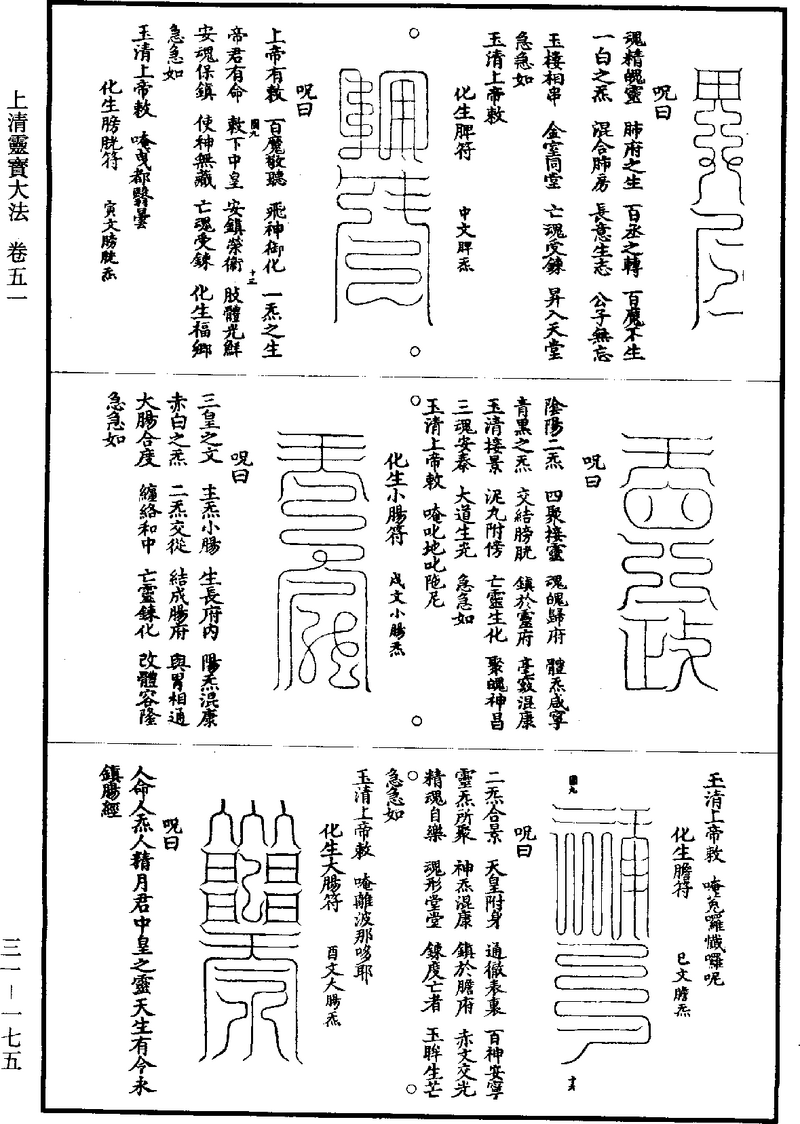 上清靈寶大法　卷五一
三一－一七五
呪曰
魂精魄靈　肺府之生　百丞之轉　百魔不生
一白之炁　混合肺房　長意生志　公子無忘
玉樓相串　金室同堂　亡魂受鍊　昇入天堂
急急如
玉清上帝敕
化生脾符　中文脾炁
呪曰
上帝有敕　百魔敬聽　飛神御化　一炁之生
帝君有命　敕下中皇　安鎮榮衛　肢體光鮮
安魂保鎮　使神無藏　亡魂受鍊　化生福鄉
急急如
玉清上帝敕　唵曳都醫曇
化生膀胱符　寅文膀胱炁
呪曰
陰陽二炁　四聚接靈　魂魄歸府　體炁咸寧
青黑之炁　交結膀胱　鎮於靈府　臺竅混康
玉清接景　泥丸附傍　亡靈生化　聚魄神昌
三魂安泰　大道生光　急急如
玉清上帝敕　唵叱地叱陁尼
化生小腸符　戌文小腸炁
呪曰
三皇之文　主炁小腸　生長府內　陽炁混康
赤白之炁　二炁交從　結成腸府　與胃相通
大腸合度　纏絡和中　亡靈鍊化　改體容隆
急急如
玉清上帝敕　唵㝹囉懺囉呢
化生膽符　巳文膽炁
圖九
十六
呪曰
二炁合景　天皇附身　通徹表裏　百神安寧
靈炁所聚　神炁混康　鎮於膽府　赤文交光
精魂自樂　魂形堂堂　鍊度亡者　玉眸生芒
急急如
玉清上帝敕　唵離波那哆耶
化生大腸符　酉文大腸炁
呪曰
人命人炁人精月君中皇之靈天生有令永
鎮腸經